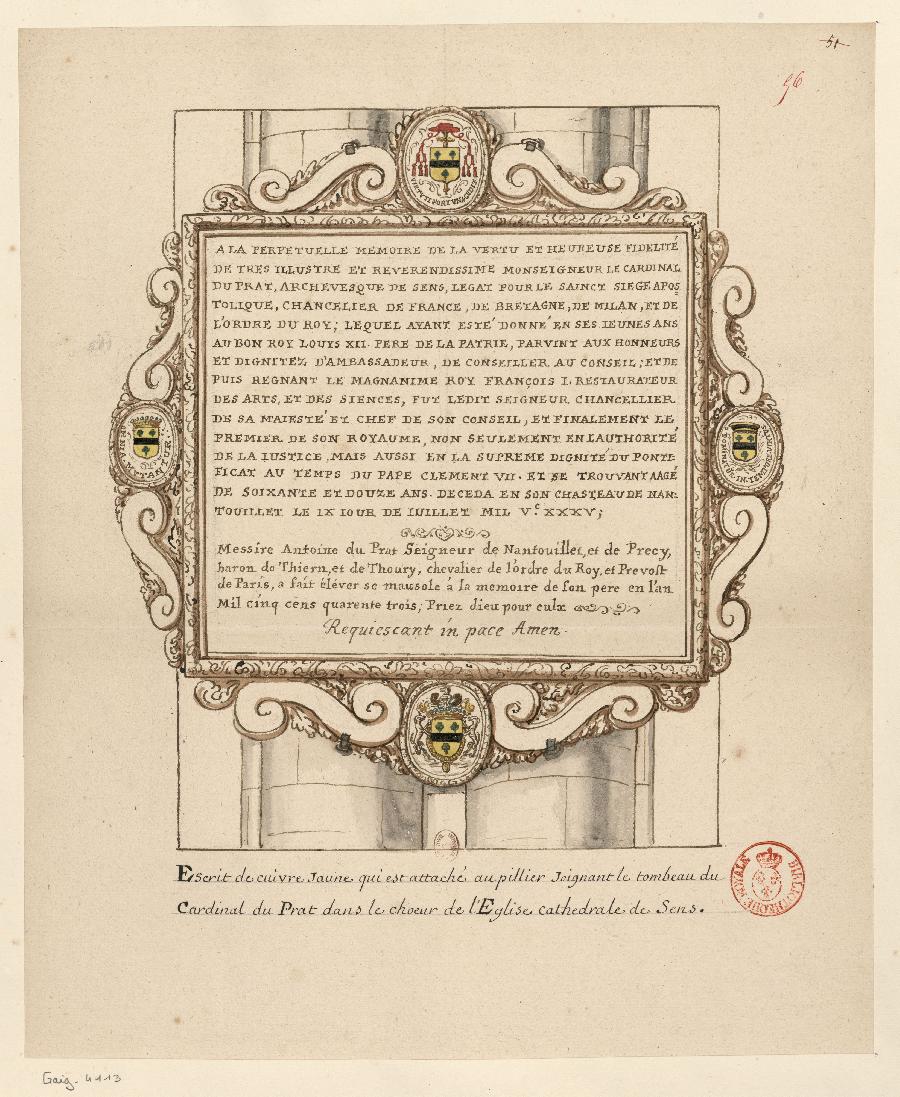 51
56
VIRTUTI FORTUNA CEDIT
A LA PERPETUELLE MEMOIRE DE LA VERTU ET HEUREUSE FIDELITÉ
DE TRES ILLUSTRE ET REVERENDISSIME MONSEIGNEUR LE CARDINAL
DU PRAT, ARCHEVESQUE DE SENS, LEGAT POUR LE SAINCT SIEGE APOS
TOLIQUE, CHANCELIER DE FRANCE, DE BRETAGNE, DE MILAN, ET DE
L'ORDRE DU ROY; LEQUEL AYANT ESTÉ DONNÉ EN SES IEUNES ANS
AU BON ROY LOUYS XII. PERE DE LA PATRIE, PARVINT AUX HONNEURS
ET DIGNITEZ D'AMBASSADEUR, DE CONSEILLER AU CONSEIL; ET DE
PUIS REGNANT LE MAGNANIME ROY FRANÇOIS I. RESTAURATEUR
DES ARTS, ET DES SIENCES, FUT LEDIT SEIGNEUR CHANCELLIER
DE SA MAIESTÉ ET CHEF DE SON CONSEIL, ET FINALEMENT LE
PREMIER DE SON ROYAUME, NON SEULEMENT EN L'AUTHORITÉ
DE LA IUSTICE, MAIS AUSSI EN LA SUPREME DIGNITÉ DU PONTI-
FICAT AU TEMPS DU PAPE CLEMENT VII. ET SE TROUVANT AAGÉ
DE SOIXANTE ET DOUZE ANS. DECEDA EN SON CHASTEAU DE NAN:
TOUILLET LE IX IOUR DE IUILLET MIL V.C XXXV;
Messire Antoine du Prat Seigneur de Nantouillet, et de Precy,
baron de Thiern, et de Thoury, chevalier de l'ordre du Roy, et Prevost
de Paris, a fait élever se mausole á la memoire de son pere en l'an
Mil cinq cens quarente trois; Priez dieu pour eulx
Requiescant in pace Amen.
Escrit de cuivre Jaune qui est attaché au pillier Joignant le tombeau du
Cardinal du Prat dans le choeur de l'Eglise cathedrale de Sens.
BIBLIOTHEQUE ROYALE
Gaig. 4113